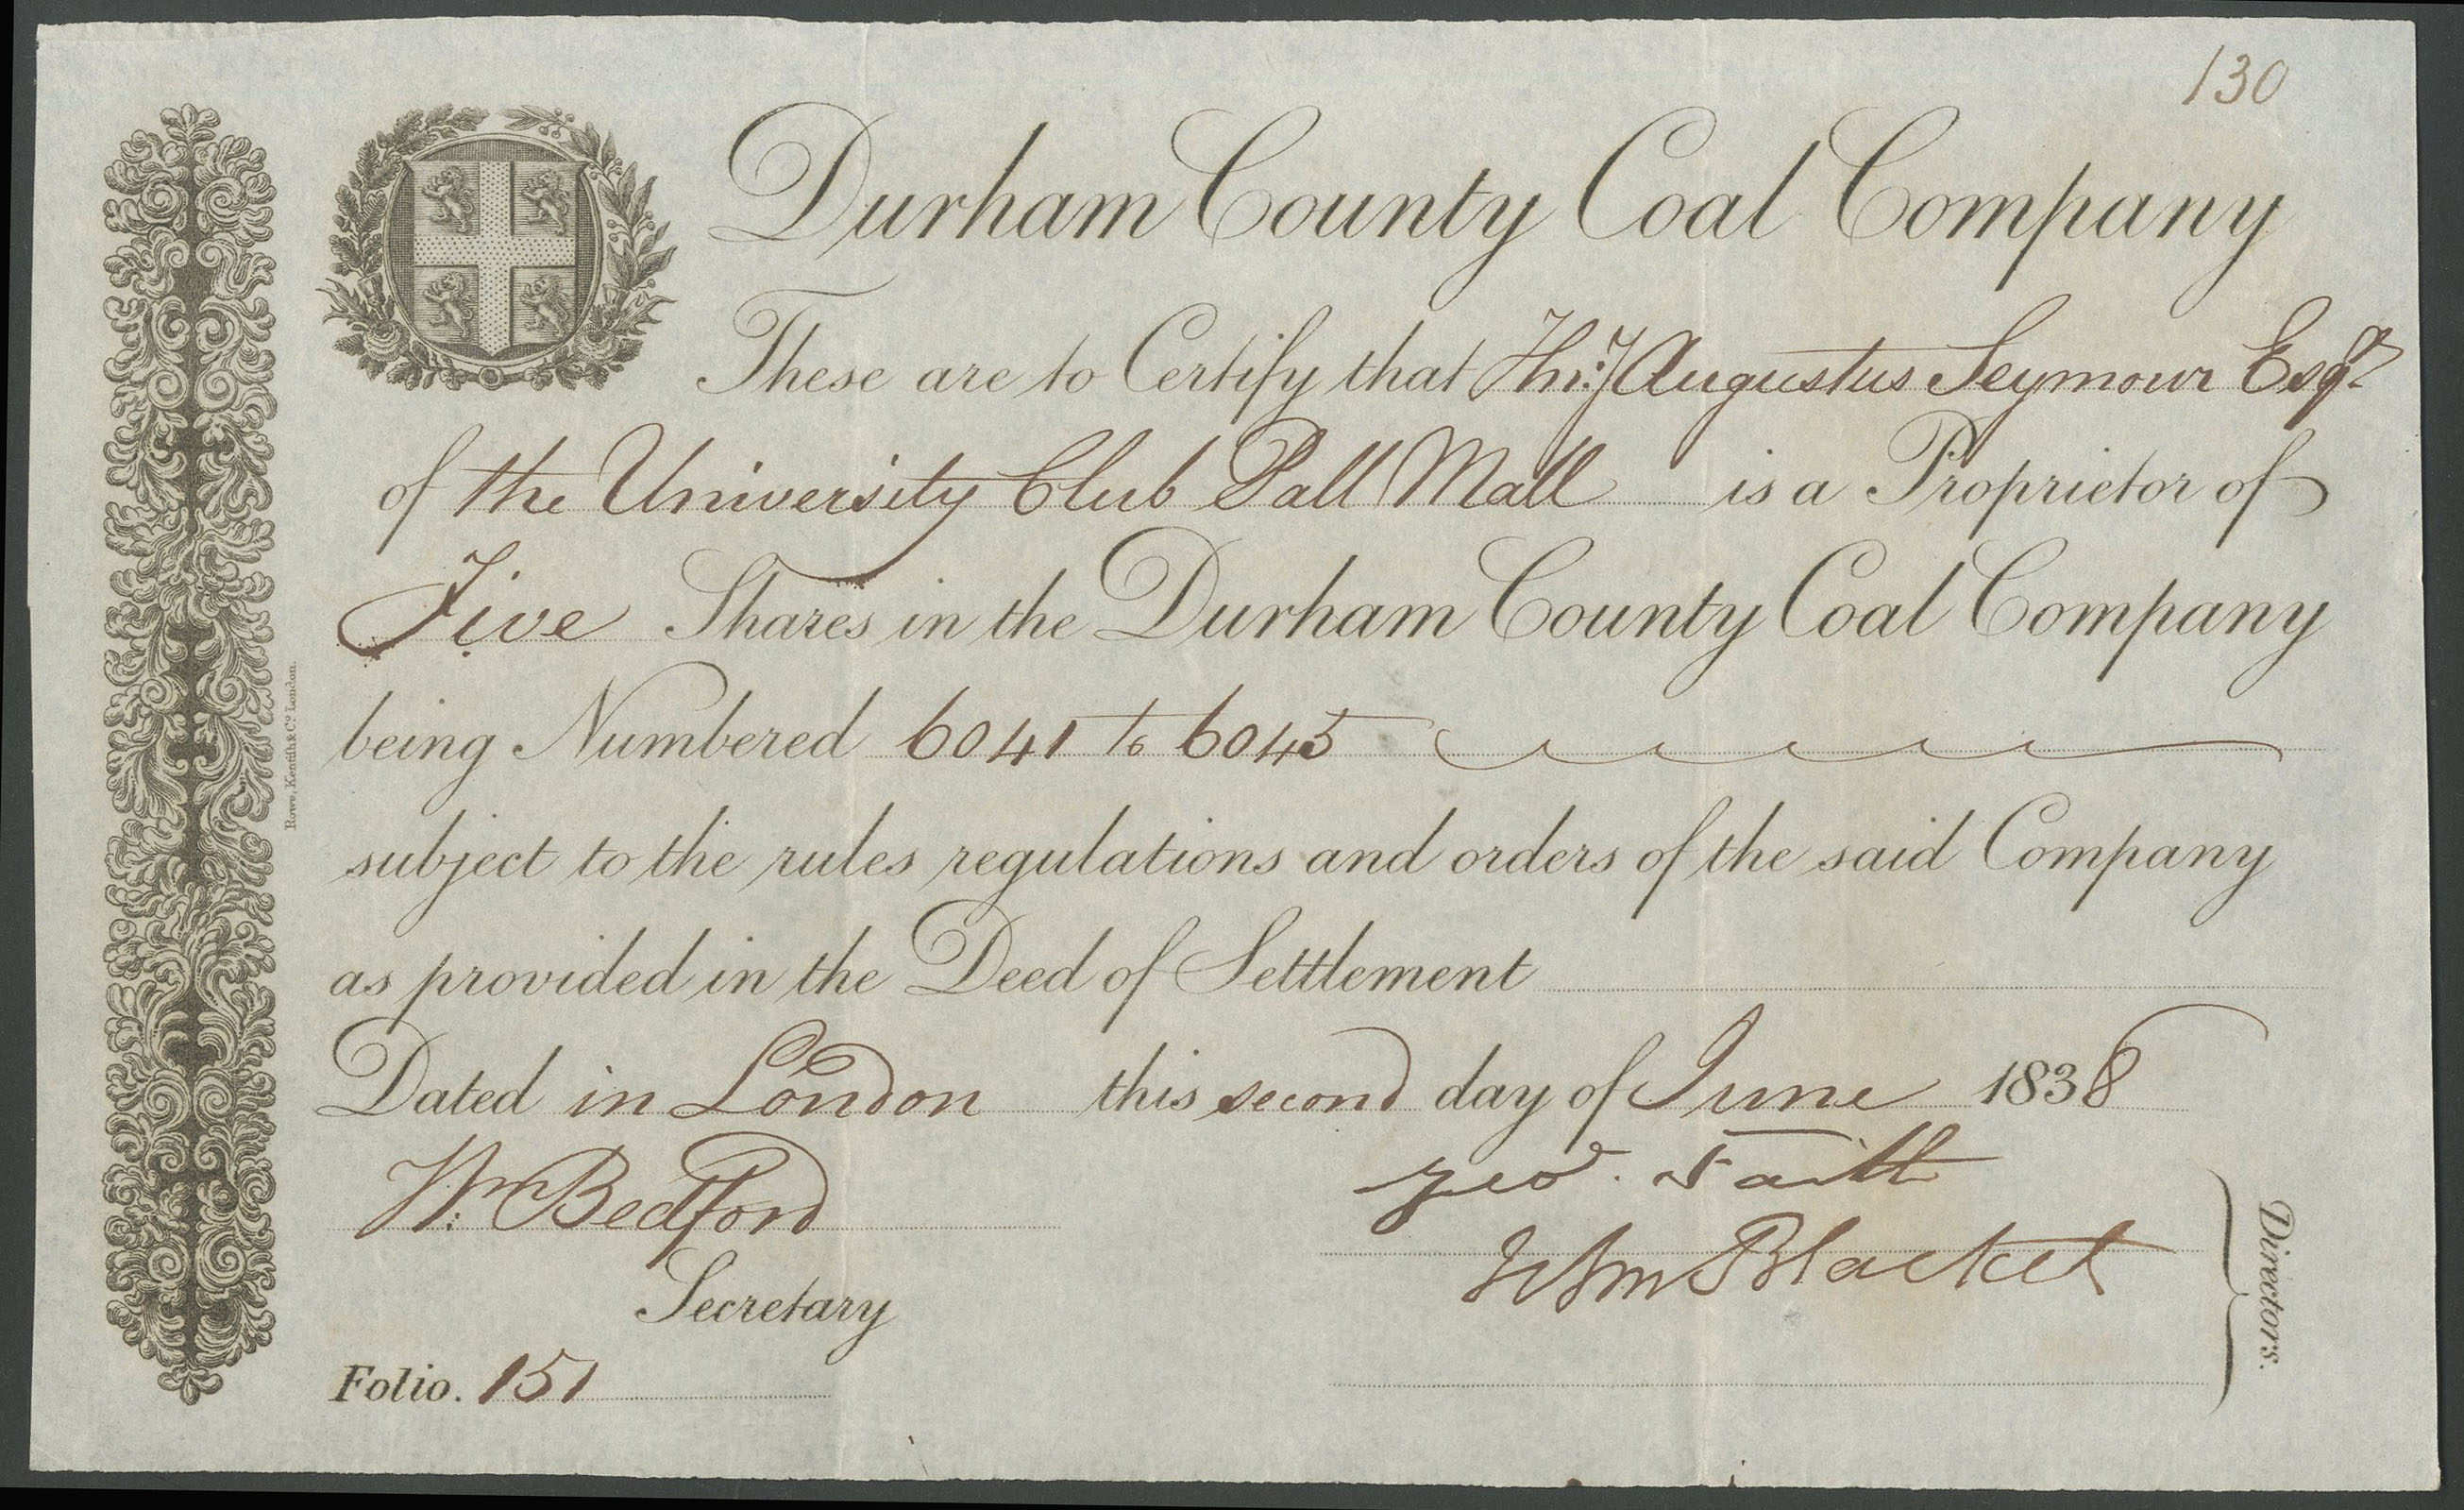 130
Durham County Coal Company
These are to Certify that Hn:y Augustus Seymour Esqr
of the University Club Pall Mall is a Proprietor of
Five Shares in the Durham County Coal Company
being Numbered 6041 to 6045
subject to the rules regulations and orders of the said Company
as provided in the Deed of Settlement
Dated in London this second day of June 1838
Wm Bedford
Secretary
Geo. Faith
Wm Blacket
Directors.
Folio. 151
Rowe, Kentish & Co. London.